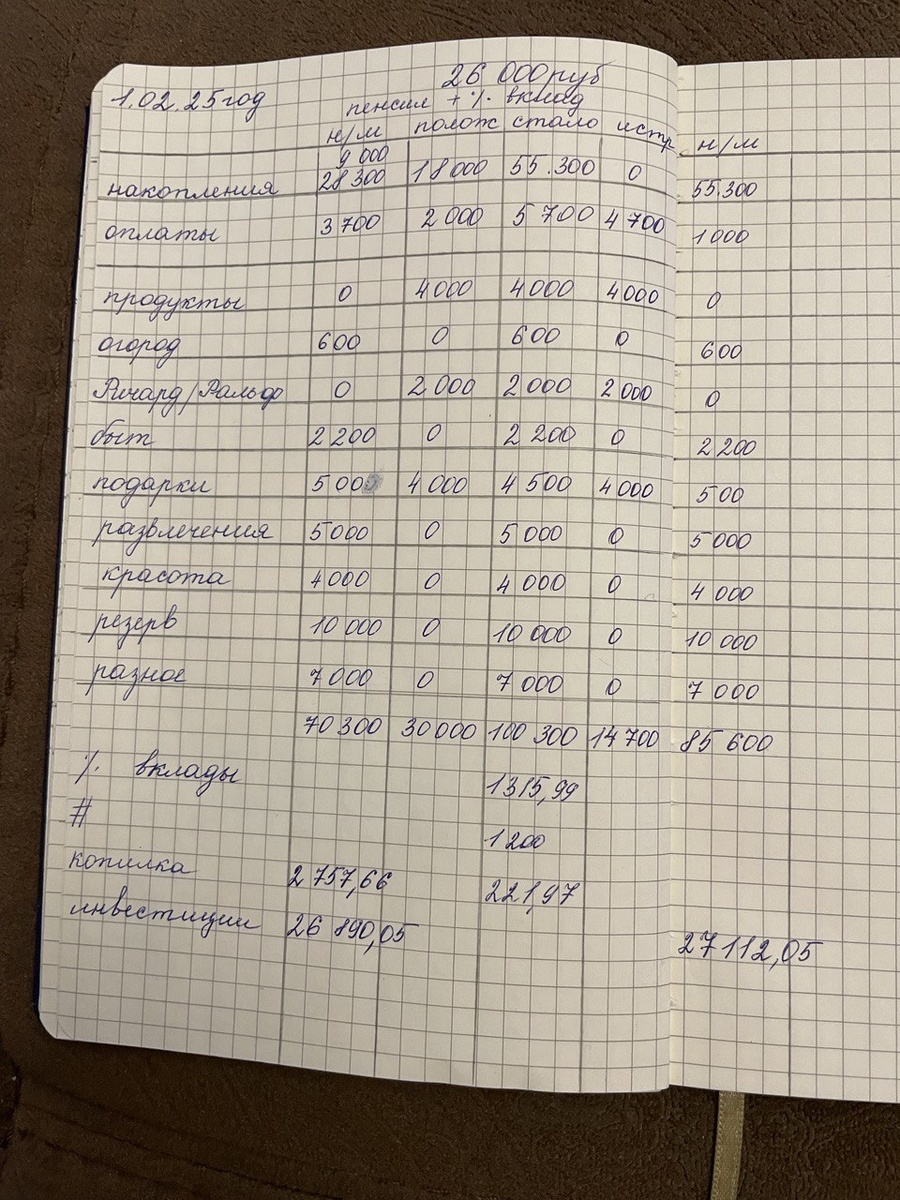 26 000 руб
1.02.25 год
пенсия + % вклад
н/м полож стало истр н/м
9 000
накопления 28 300 18 000 55.300 0 55.300
оплаты 3 700 2 000 5 700 4 700 1 000
продукты 0 4 000 4 000 4 000 0
огород 600 0 600 0 600
Ричард/Ральф 0 2 000 2 000 2 000 0
быт 2 200 0 2 200 0 2 200
подарки 500 4 000 4 500 4 000 500
развлечения 5 000 0 5 000 0 5 000
красота 4 000 0 4 000 0 4 000
резерв 10 000 0 10 000 0 10 000
разное 7 000 0 7 000 0 7 000
70 300 30 000 100 300 14 700 85 600
% вклады 1315,99
# 1 200
копилка 2 757,66 221,97
инвестиции 26 890,05 27 112,05